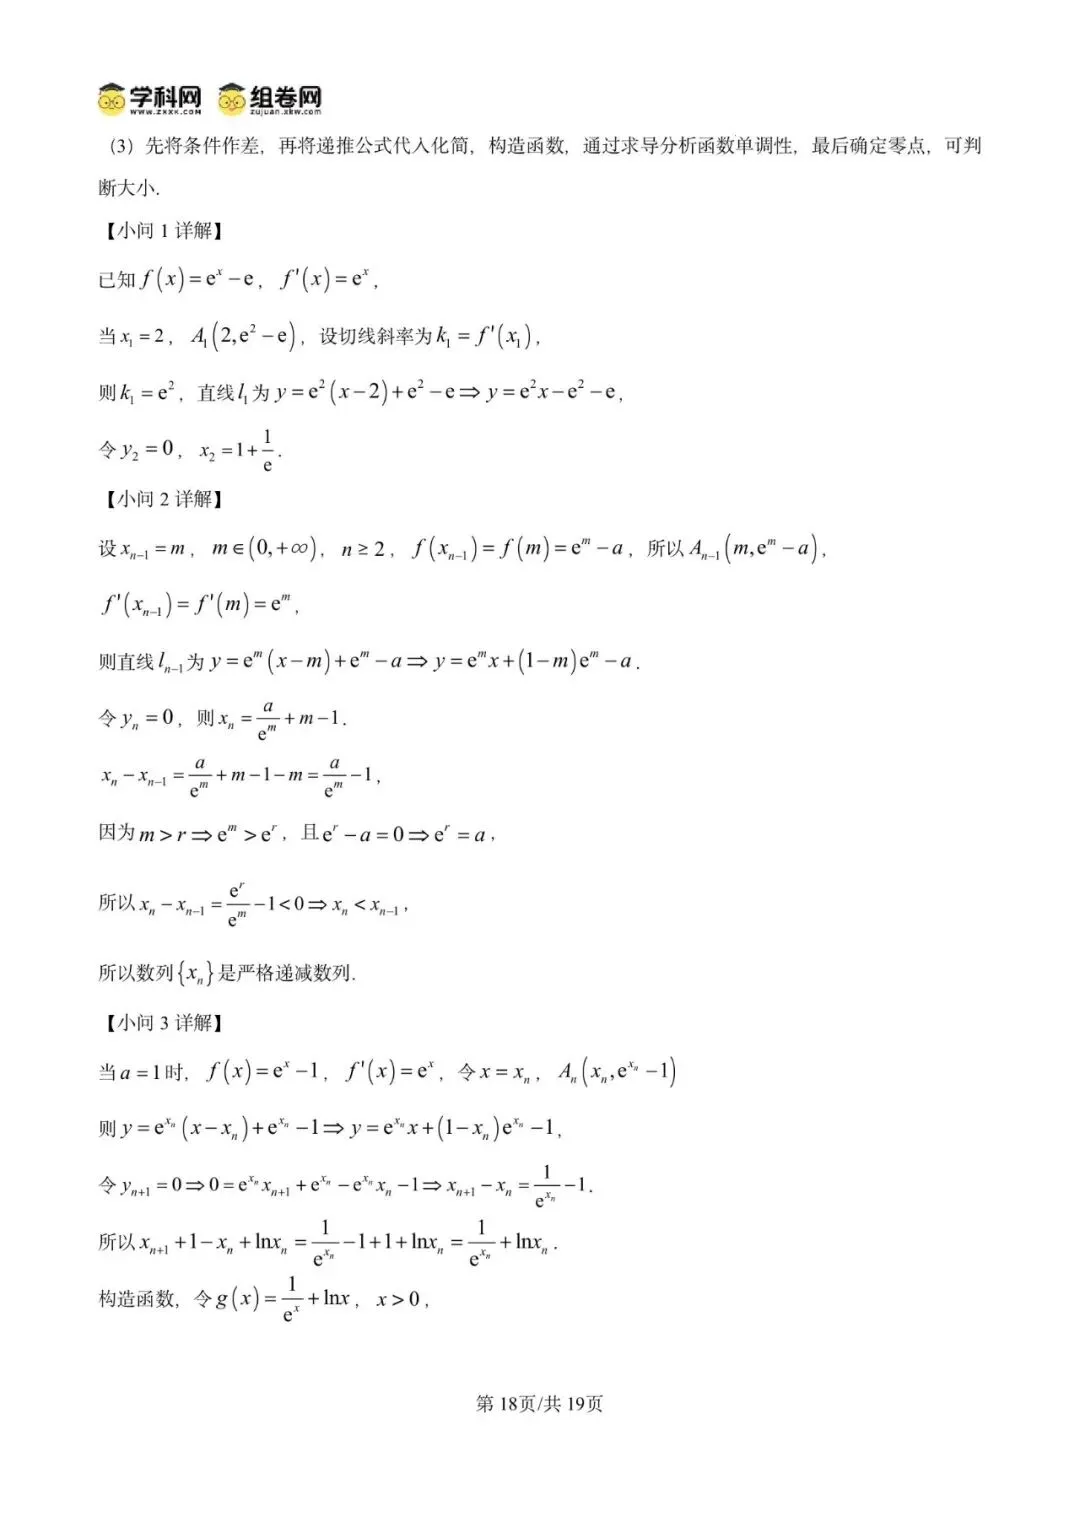 学科网 组卷网
www.zxxk.com zujuan.xkw.com
(3) 先将条件作差，再将递推公式代入化简，构造函数，通过求导分析函数单调性，最后确定零点，可判
断大小.
【小问 1 详解】
已知 f(x)=e^x-e，f'(x)=e^x，
当 x₁=2，A₁(2,e²-e)，设切线斜率为 k₁=f'(x₁)，
则 k₁=e²，直线 l₁ 为 y=e²(x-2)+e²-e⇒y=e²x-e²-e，
令 y₂=0，x₂=1+1/e.
【小问 2 详解】
设 x_{n-1}=m，m∈(0,+∞)，n≥2，f(x_{n-1})=f(m)=e^m-a，所以 A_{n-1}(m,e^m-a)，
f'(x_{n-1})=f'(m)=e^m，
则直线 l_{n-1} 为 y=e^m(x-m)+e^m-a⇒y=e^m x+(1-m)e^m-a.
令 y_n=0，则 x_n=a/e^m+m-1.
x_n-x_{n-1}=a/e^m+m-1-m=a/e^m-1，
因为 m>r⇒e^m>e^r，且 e^r-a=0⇒e^r=a，
所以 x_n-x_{n-1}=e^r/e^m-1<0⇒x_n<x_{n-1}，
所以数列{x_n}是严格递减数列.
【小问 3 详解】
当 a=1 时，f(x)=e^x-1，f'(x)=e^x，令 x=x_n，A_n(x_n,e^{x_n}-1)
则 y=e^{x_n}(x-x_n)+e^{x_n}-1⇒y=e^{x_n}x+(1-x_n)e^{x_n}-1，
令 y_{n+1}=0⇒0=e^{x_n}x_{n+1}+e^{x_n}-e^{x_n}x_n-1⇒x_{n+1}-x_n=1/e^{x_n}-1.
所以 x_{n+1}+1-x_n+lnx_n=1/e^{x_n}-1+1+lnx_n=1/e^{x_n}+lnx_n.
构造函数，令 g(x)=1/e^x+lnx，x>0，
第 18页/共 19页